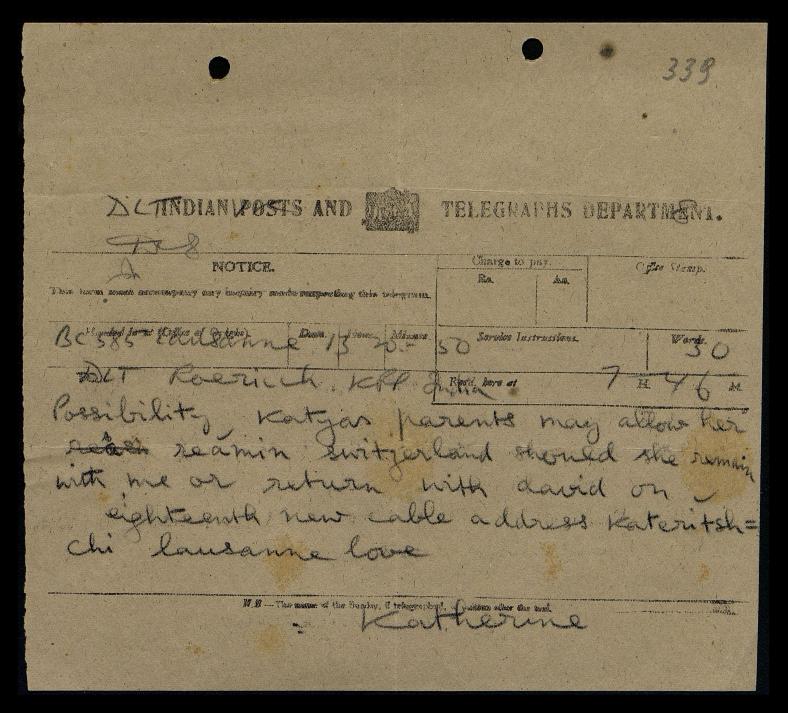 339
DLT INDIAN POSTS AND TELEGRAPHS DEPARTMENT.
NOTICE.
Charge to pay.
Office Stamp.
Rs. As.
This form must accompany any inquiry made respecting this telegram.
Handed in at (Office of Origin). Date. Hour. Minute. Service Instructions. Words.
BC 585 Lausanne 13 20 - 50 30
Recd. here at 7 H. 46 M.
DLT Roerich. KPP India
Possibility Katyas parents may allow her
reamin switzerland should she remain
with me or return with david on
eighteenth new cable address Kateritsh=
chi lausanne love
N.B.—The name of the Sender, if telegraphed, is written after the text.
Katherine